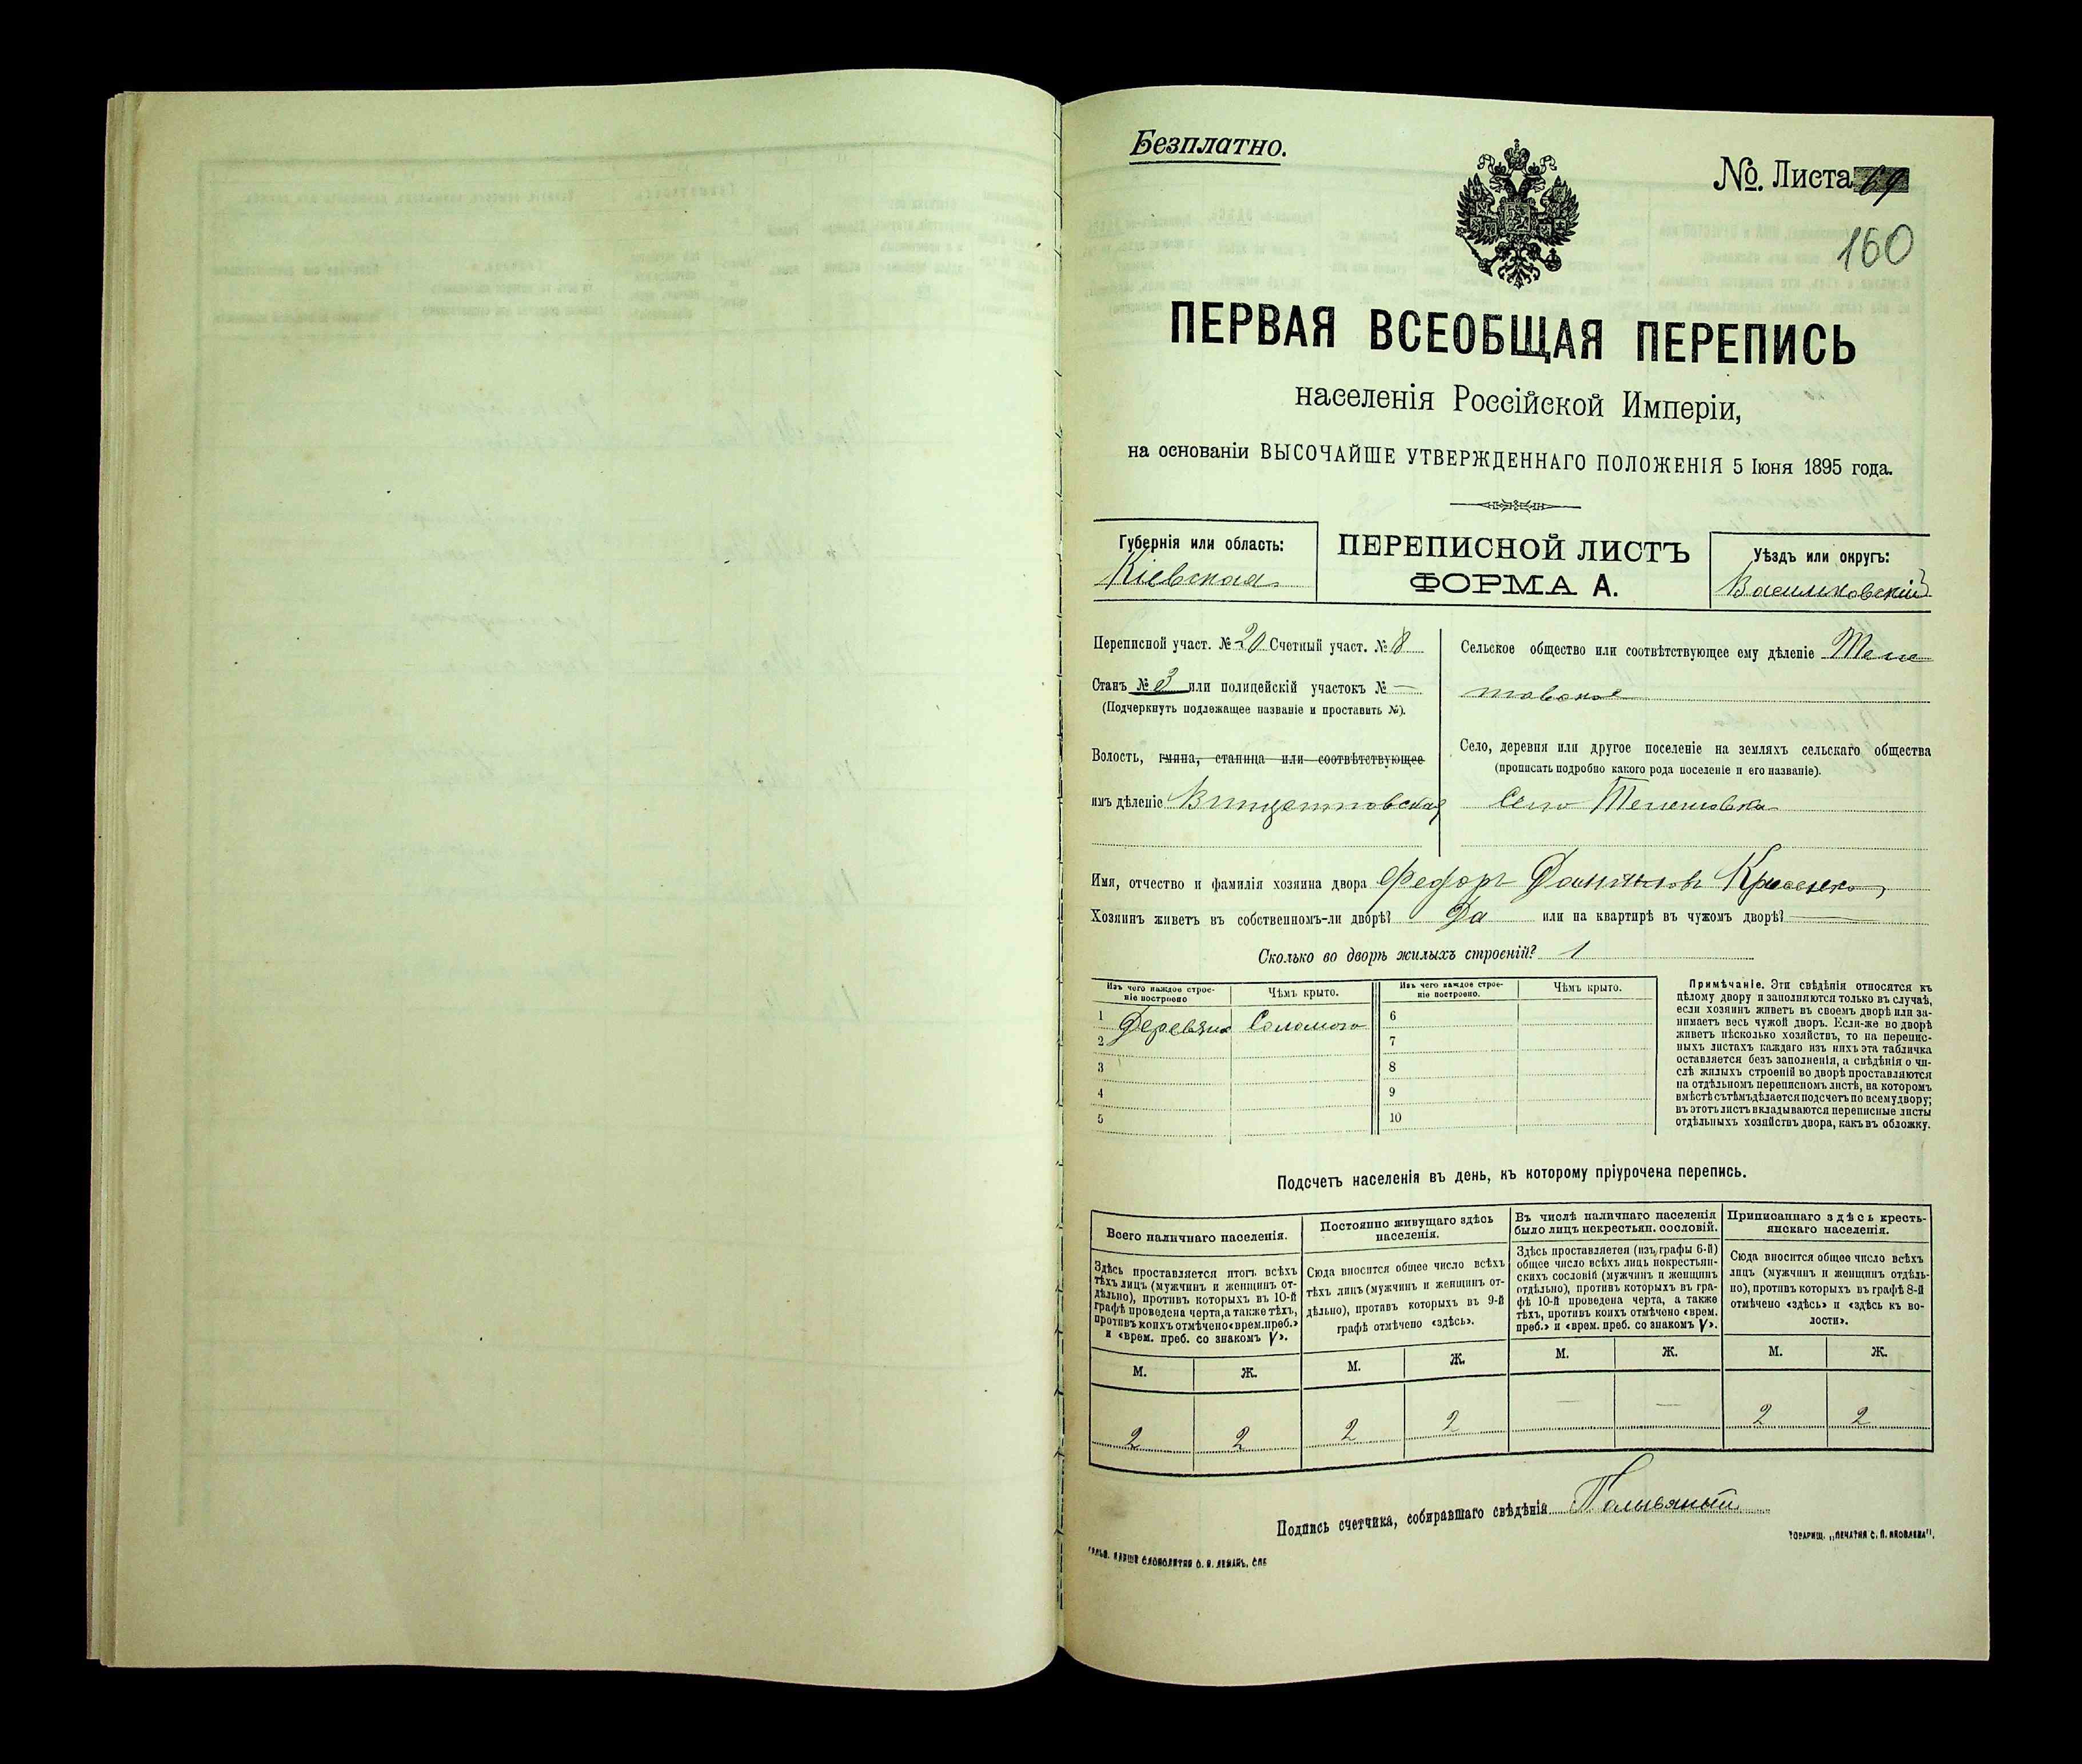 Безплатно.
№. Листа 69
160
ПЕРВАЯ ВСЕОБЩАЯ ПЕРЕПИСЬ
населенія Россійской Имперіи,
на основаніи ВЫСОЧАЙШЕ УТВЕРЖДЕННАГО ПОЛОЖЕНІЯ 5 Іюня 1895 года.
Губернія или область:
Кіевская
ПЕРЕПИСНОЙ ЛИСТЪ
ФОРМА А.
Уѣздъ или округъ:
Васильковскій
Переписной участ. № 20 Счетный участ. № 8
Станъ № 3 или полицейскій участокъ № —
(Подчеркнуть подлежащее названіе и проставить №).
Волость, гмина, станица или соотвѣтствующее
имъ дѣленіе Винцентовская
Сельское общество или соотвѣтствующее ему дѣленіе Теле
товское
Село, деревня или другое поселеніе на земляхъ сельскаго общества
(прописать подробно какого рода поселеніе и его названіе).
Село Телешовка
Имя, отчество и фамилія хозяина двора Федоръ Даниловъ
Хозяинъ живетъ въ собственномъ-ли дворѣ? Да или на квартирѣ въ чужомъ дворѣ? —
Сколько во дворѣ жилыхъ строеній? 1
Изъ чего каждое строе-
ніе построено
Чѣмъ крыто.
Изъ чего каждое строе-
ніе построено.
Чѣмъ крыто.
1 Деревяно Соломою 6
2 7
3 8
4 9
5 10
Примѣчаніе. Эти свѣдѣнія относятся къ
цѣлому двору и заполняются только въ случаѣ,
если хозяинъ живетъ въ своемъ дворѣ или за-
нимаетъ весь чужой дворъ. Если-же во дворѣ
живетъ нѣсколько хозяйствъ, то на перепис-
ныхъ листахъ каждаго изъ нихъ эта табличка
оставляется безъ заполненія, а свѣдѣнія о чи-
слѣ жилыхъ строеній во дворѣ проставляются
на отдѣльномъ переписномъ листѣ, на которомъ
вмѣстѣ съ тѣмъ дѣлается подсчетъ по всему двору;
въ этотъ листъ вкладываются переписные листы
отдѣльныхъ хозяйствъ двора, какъ въ обложку.
Подсчетъ населенія въ день, къ которому пріурочена перепись.
Всего наличнаго населенія.
Здѣсь проставляется итогъ всѣхъ
тѣхъ лицъ (мужчинъ и женщинъ от-
дѣльно), противъ которыхъ въ 10-й
графѣ проведена черта, а также тѣхъ,
противъ коихъ отмѣчено «врем. преб.»
и «врем. преб. со знакомъ V».
Постоянно живущаго здѣсь
населенія.
Сюда вносится общее число всѣхъ
тѣхъ лицъ (мужчинъ и женщинъ от-
дѣльно), противъ которыхъ въ 9-й
графѣ отмѣчено «здѣсь».
Въ числѣ наличнаго населенія
было лицъ некрестьян. сословій.
Здѣсь проставляется (изъ графы 6-й)
общее число всѣхъ лицъ некрестьян-
скихъ сословій (мужчинъ и женщинъ
отдѣльно), противъ которыхъ въ гра-
фѣ 10-й проведена черта, а также
тѣхъ, противъ коихъ отмѣчено «врем.
преб.» и «врем. преб. со знакомъ V».
Приписаннаго здѣсь кресть-
янскаго населенія.
Сюда вносится общее число всѣхъ
лицъ (мужчинъ и женщинъ отдѣль-
но), противъ которыхъ въ графѣ 8-й
отмѣчено «здѣсь» и «здѣсь къ во-
лости».
М. Ж. М. Ж. М. Ж. М. Ж.
2 2 2 2 — — 2 2
Подпись счетчика, собиравшаго свѣдѣнія Поливяный
ТОВАРИЩ. „ПЕЧАТНЯ С. П. ЯКОВЛЕВА".